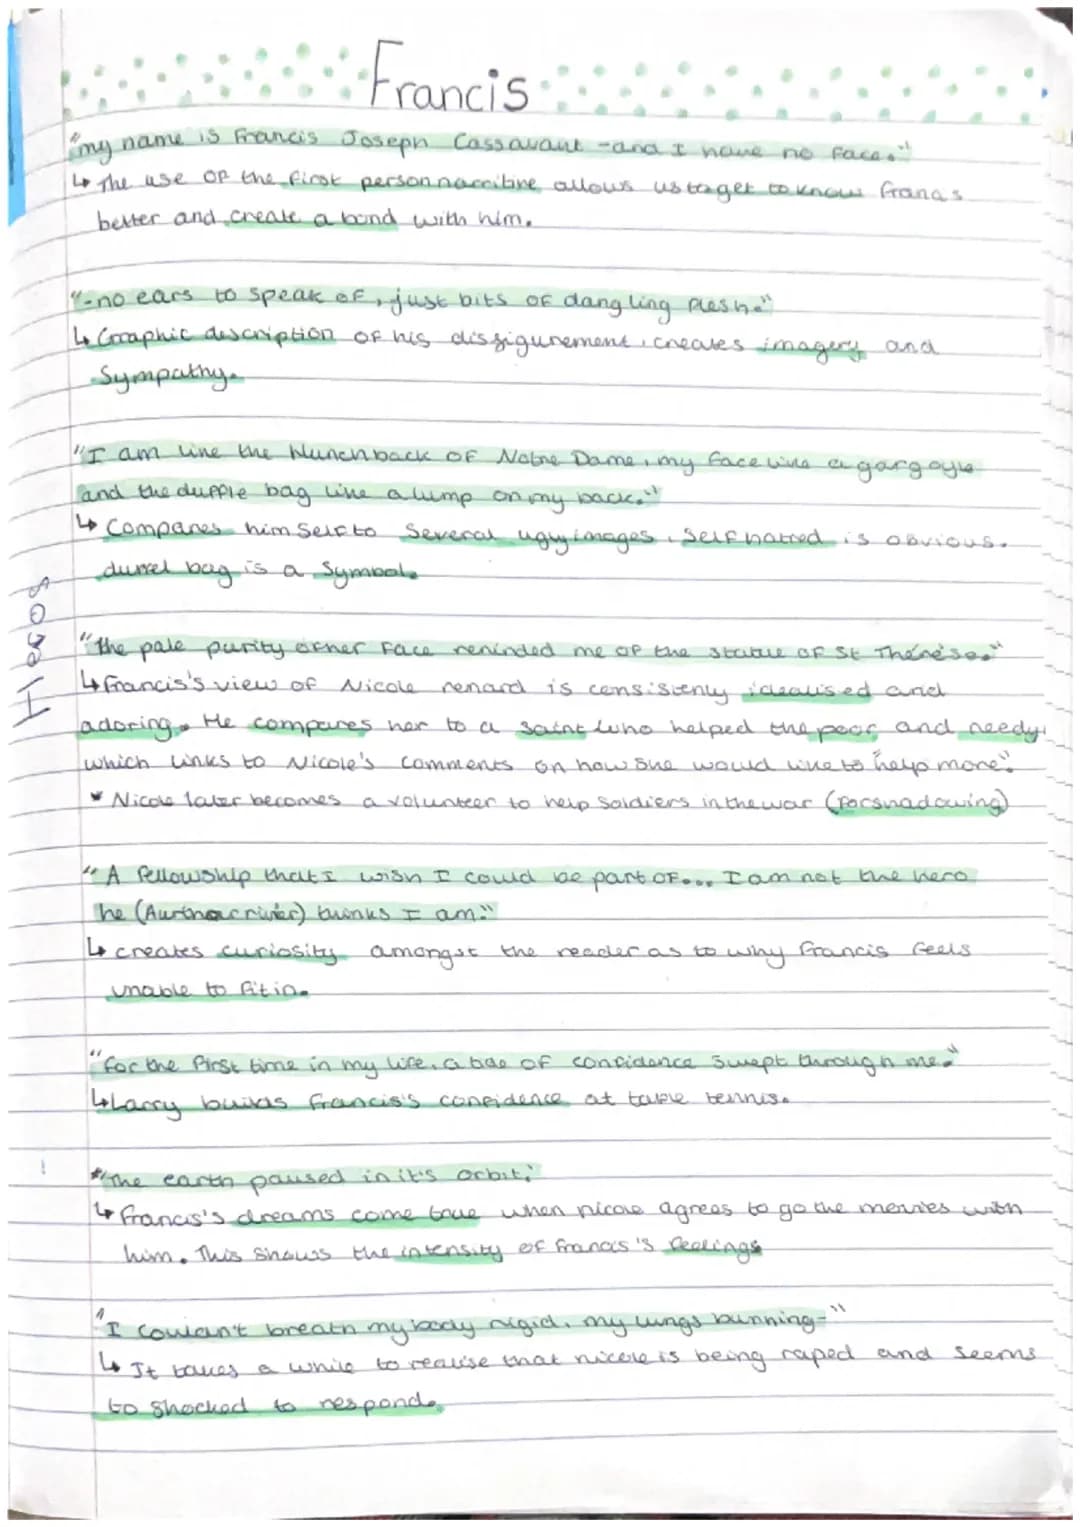 Francis
"my name is Francis Joseph Cassavant - and I have no face."
↳ The use of the first person narritive allows us to get to know francis
better and create a bond with him.
"-no ears to speak of, just bits of dangling flesh."
↳ Graphic description of his disfigurement, creates imagery and
Sympathy.
"I am like the Hunchback of Notre Dame, my face like a gargoyle
and the duffle bag like a lump on my back."
↳ Compares himself to several ugly images. Self hatred is obvious.
duffel bag is a Symbol.
"the pale purity of her face reminded me of the statue of St Thérèse."
↳ Francis's view of Nicole renard is consistenly idealised and
adoring. He compares her to a saint who helped the poor and needy,
which links to Nicole's comments on how she would like to "help more".
* Nicole later becomes a volunteer to help soldiers in the war (forshadowing)
"A fellowship that I wish I could be part of... I am not the hero
he (Aurthor river) thinks I am."
↳ creates curiosity amongst the reader as to why francis feels
unable to fit in.
"for the first time in my life, a bae of confidence swept through me."
↳ Larry builds francis's confidence at table tennis.
"The earth paused in it's orbit."
↳ francis's dreams come true when nicole agrees to go the movies with
him. This shows the intensity of francis's feelings
"I couldn't breath my body rigid, my lungs burning-"
↳ It takes a while to realise that nicole is being raped and seems
to shocked to respond.